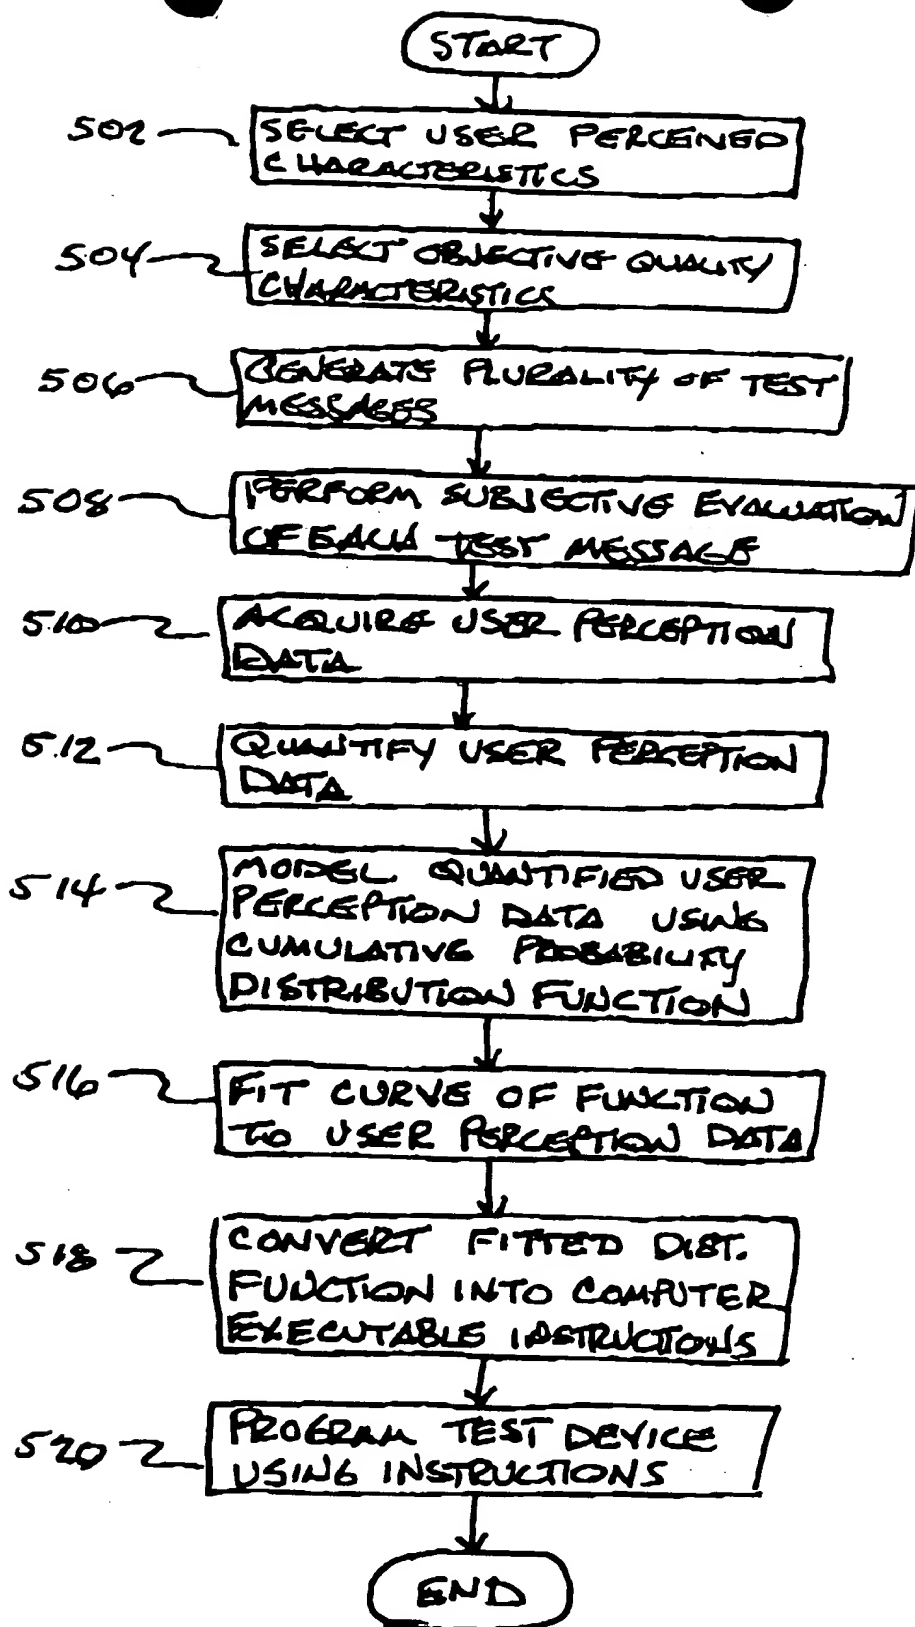 START
502 SELECT USER PERCEIVED
CHARACTERISTICS
504 SELECT OBJECTIVE QUALITY
CHARACTERISTICS
506 GENERATE PLURALITY OF TEST
MESSAGES
508 PERFORM SUBJECTIVE EVALUATION
OF EACH TEST MESSAGE
510 ACQUIRE USER PERCEPTION
DATA
512 QUANTIFY USER PERCEPTION
DATA
514 MODEL QUANTIFIED USER
PERCEPTION DATA USING
CUMULATIVE PROBABILITY
DISTRIBUTION FUNCTION
516 FIT CURVE OF FUNCTION
TO USER PERCEPTION DATA
518 CONVERT FITTED DIST.
FUNCTION INTO COMPUTER
EXECUTABLE INSTRUCTIONS
520 PROGRAM TEST DEVICE
USING INSTRUCTIONS
END